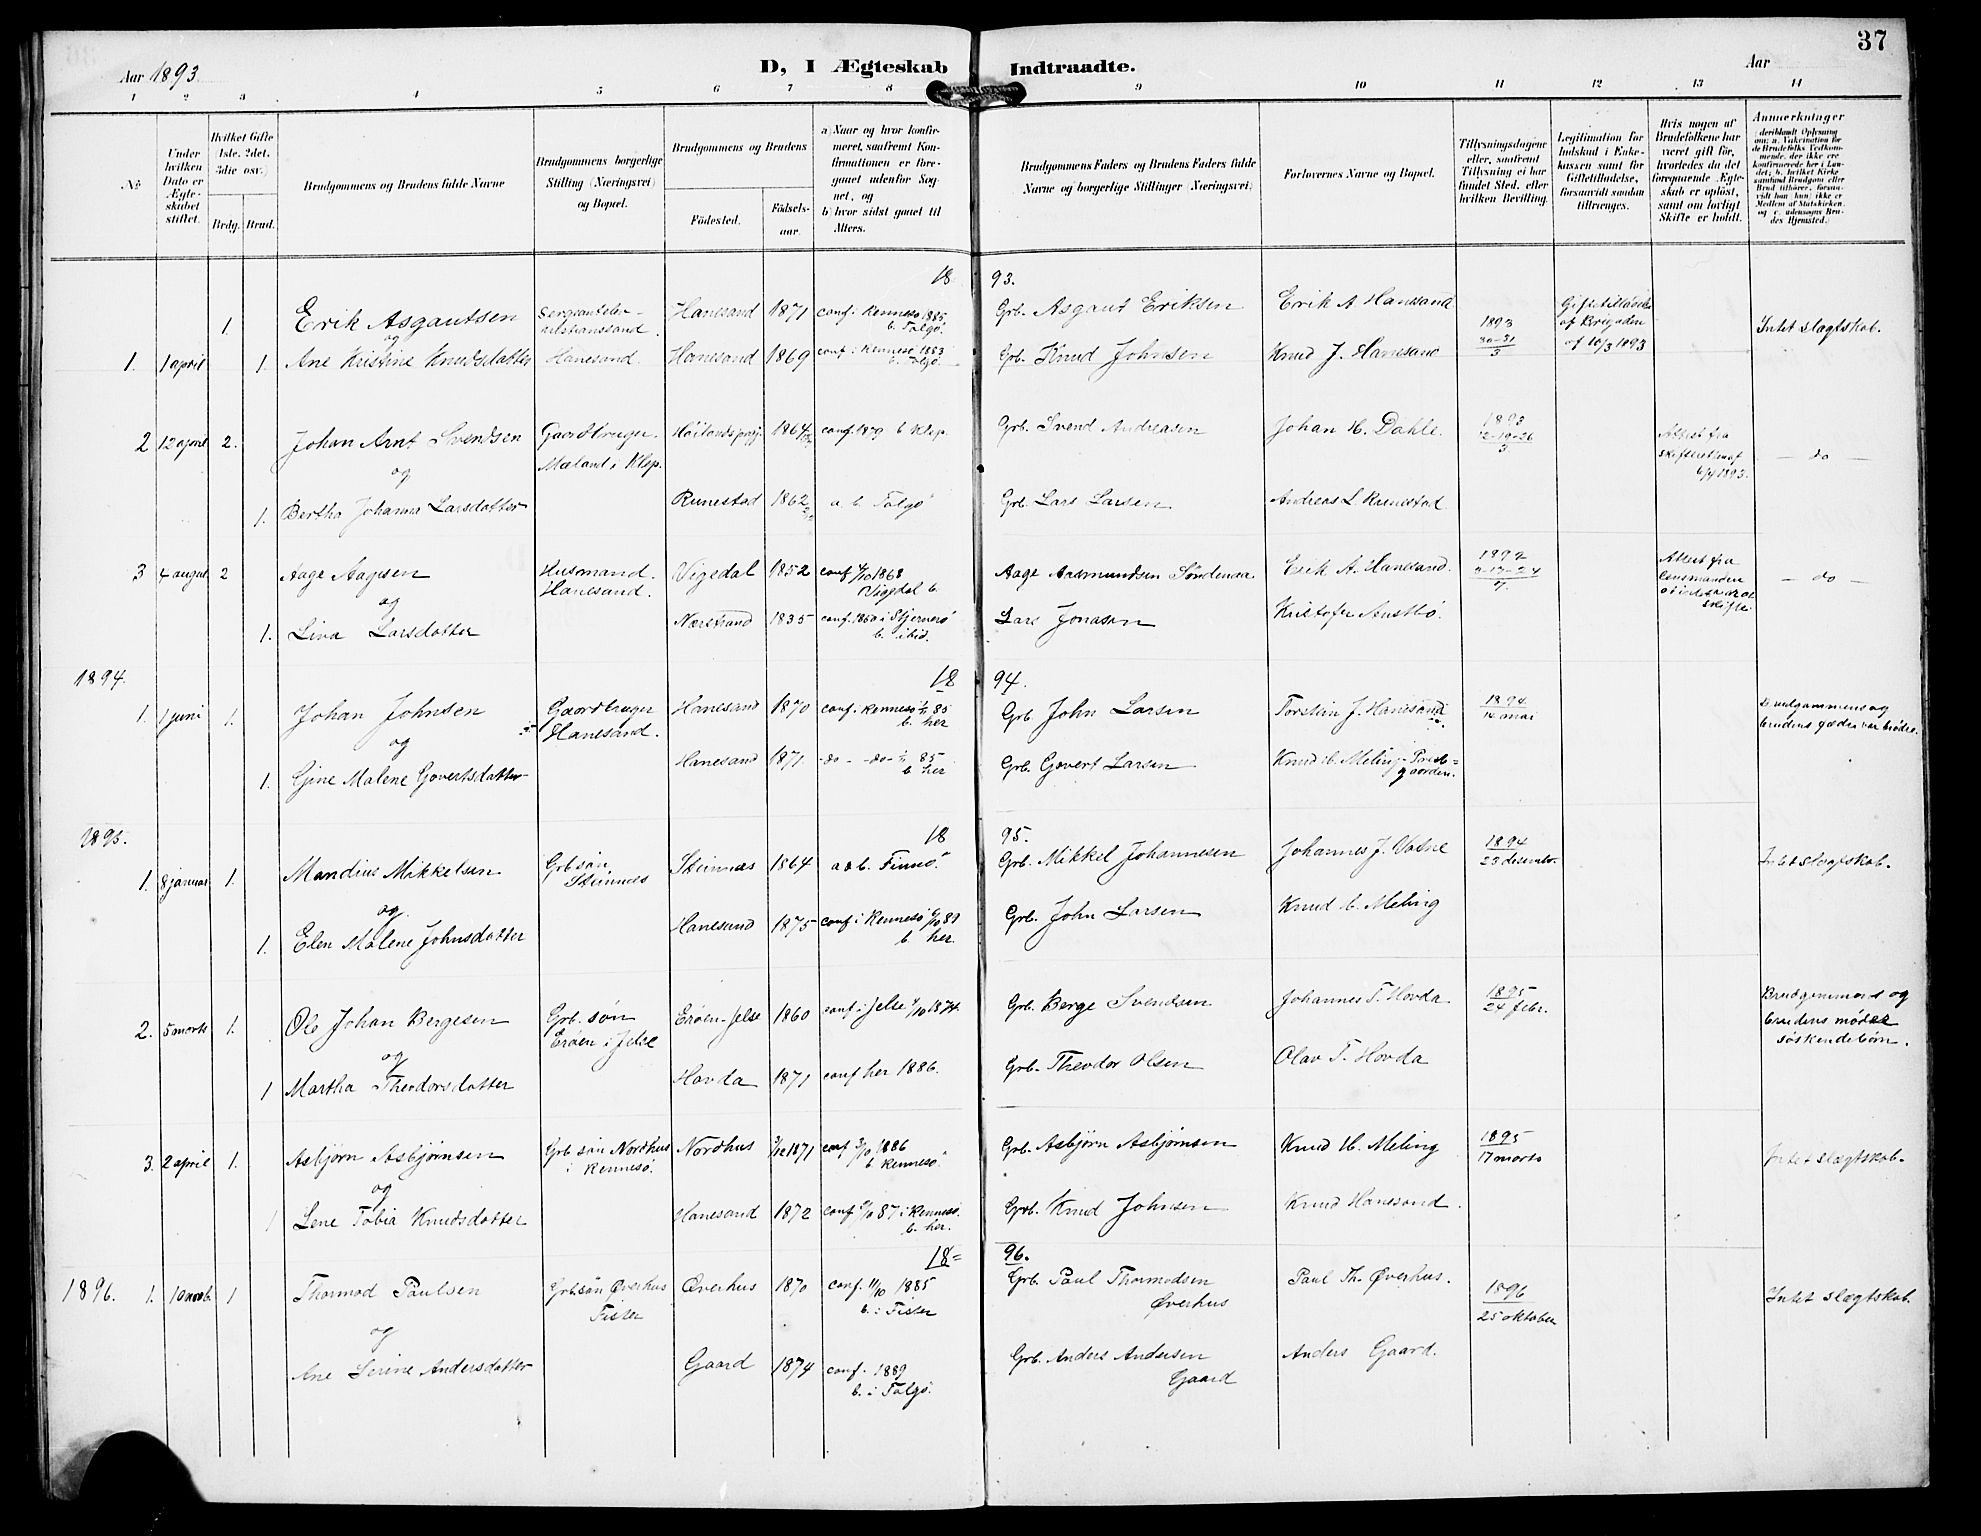 37
Aar 1893.
D, I Ægteskab Indtraadte.
Aar
1 2 3 4 5 6 7 8 9 10 11 12 13 14
No
Under hvilken Dato er Ægteskabet stiftet.
Hvilket Gifte (1ste, 2det, 3die osv.)
Brdg. Brud.
Brudgommens og Brudens fulde Navne
Brudgommens borgerlige Stilling (Næringsvei) og Bopæl.
Brudgommens og Brudens
Fødested.
Fødselsaar.
a) Naar og hvor konfirmeret, saafremt Konfirmationen er foregaaet udenfor Sognet, og
b) hvor sidst gaaet til Alters.
Brudgommens Faders og Brudens Faders fulde Navne og borgerlige Stillinger (Næringsvei)
Forlovernes Navne og Bopæl.
Tillysningsdagene eller, saafremt Tillysning ei har fundet Sted, efter hvilken Bevilling.
Legitimation for Indskud i Enkekassen samt for Giftetilladelse, forsaavidt saadan tiltrænges.
Hvis nogen af Brudefolkene har været gift før, hvorledes da det foregaaende Ægteskab er opløst, samt om lovligt Skifte er holdt.
Anmerkninger
18 93.
1. 1 april 1. Erik Asgautsen Hanesand 1871 conf. i Rennesø 1885 b. Talgø. Grb. Asgaut Eriksen Erik A Hanesand 1893 Giftetilladelse af Brigaden af 10/3 1893 Intet slægtskab.
og
1. Ane Kristine Knudsdatter Hanesand. Hanesand 1869 conf i Rennesø 1883 Talgø. Grb. Knud Johnsen Knud J. Hanesand
2 12 april 2. Johan Arnt Svendsen Gaardbruger. Mæland i Klep. 1864 conf. 1879 b Klep. Grb. Svend Andreasen Johan H. Dahle. 1893 12-19-26/3 Attest fra skifteretten af 6/4 1893. – do –
og
1. Bertha Johanna Larsdatter Runestad 1862 a. b. Talgø Grb. Lars Larsen Andreas L. Runestad
3 4 august 2 Aage Aagesen Husmand. Hanesand. Vigedal 1852 conf 1868 Vigedal b. Aage Aasmundsen Søndenaa Erik A. Hanesand. Attest fra lensmanden – do –
og
1. Liva Larsdatter Nærstrand 1835 conf. 1850 i Stjernerø b. ibid. Lars Jonason Kristofer Austbø.
1894. 18 94.
1. 1 juni 1. Johan Johnsen Gaardbruger Hanesand. Hanesand 1870 conf. Rennesø 85 b. her Grb. John Larsen Torstein J. Hanesand 1894 14 mai Brudgommens og brudens fædre var brødre.
og
1. Gine Malene Govertsdatter Hanesand 1871. –do– –do– 85 b. her Grb. Govert Larsen Knud H. Meling. Prestgaarden.
1895. 18 95.
1. 8 januar 1. Mandius Mikkelsen Grb. søn Steinnæs Steinnæs 1864 a & b. Finnø. Grb. Mikkel Johannesen Johannes J. Vatne 1894 23 desember. Intet slægtskab.
og
1. Elen Malene Johnsdatter Hanesand 1875 conf i Rennesø 89 b. her. Grb. John Larsen Knud H. Meling
2. 5 marts 1. Ole Johan Bergesen Grb. søn Erøen i Jelse Erøen-Jelse 1860 conf i Jelse 1874. Grb. Berge Svendsen Johannes T. Hovda 1895 24 febr. Brudgommens og brudens mødre søskendebørn.
og
1 Martha Theodorsdatter Hovda 1871 conf her 1886. Grb. Theodor Olsen Olav T. Hovda
3. 2 april 1. Asbjørn Asbjørnsen Grb søn Nordhus i Rennesø. Nordhus 1871 conf 1886 b Rennesø. Grb. Asbjørn Asbjørnsen Knud H. Meling 1895 17 marts Intet slægtskab.
og
1 Lene Tobia Knudsdatter Hanesand 1872 conf 87 i Rennesø. b. her. Grb. Knud Johnsen Knud Hanesand.
18= 96.
1896. 1. 10 novb. 1 Thormod Paulsen Grb. søn Øverhus Fister Øverhus 1870 conf. 11/10 1885 b. i Fister Grb. Paul Thormodsen Øverhus Paul Th. Øverhus. 1896 25 oktober Intet slægtskab.
og
Ane Serine Andersdatter Gaard 1874 conf. 1889 b. i Talgø. Grb. Anders Andersen Gaard Anders Gaard.